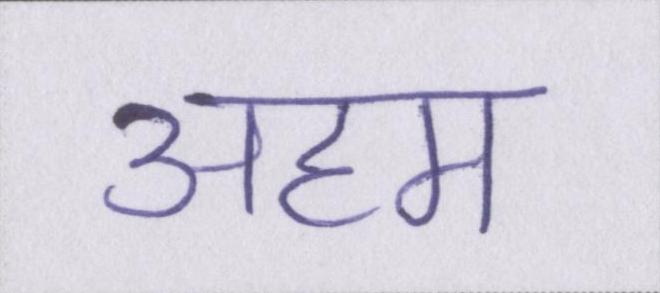 अहम